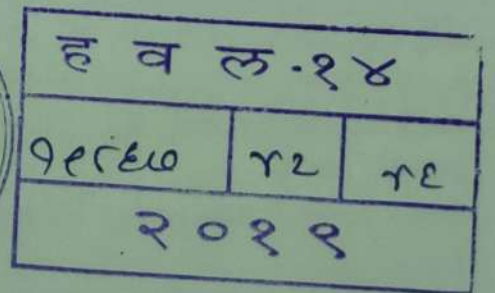 ह व ल - १४
१९८६७ ४२ ४६
२०१९